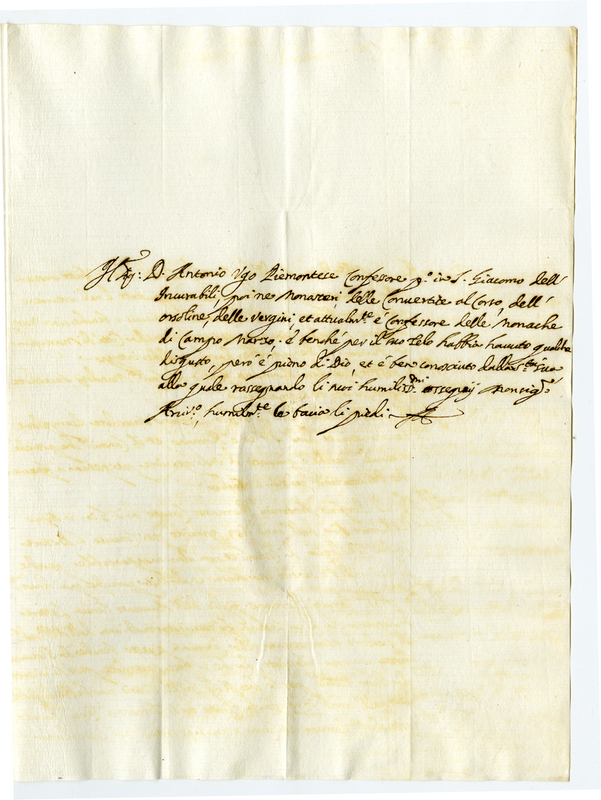 D. Antonio Ugo Piemontese Confessore p.º in S. Giacomo dell'
Incurabili, poi ne Monasterij delle Convertite al Corso, dell'
orsoline, delle Vergini, et attualm.te è Confessore delle Monache
di Campo Marzo; e benche per il suo zelo habbia havuto qualche
disgusto, però è pieno di Dio, et è ben conosciuto dalla S.tà Sua
alla quale rassegnando li suoi humiliss.mi ossequij Monsig.r
humilm.te le bacia li piedi